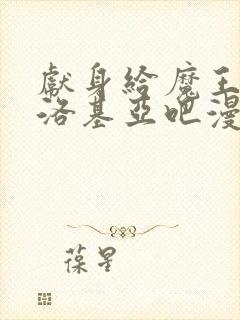 獻身給魔王
洛基亞吧漫
葆星